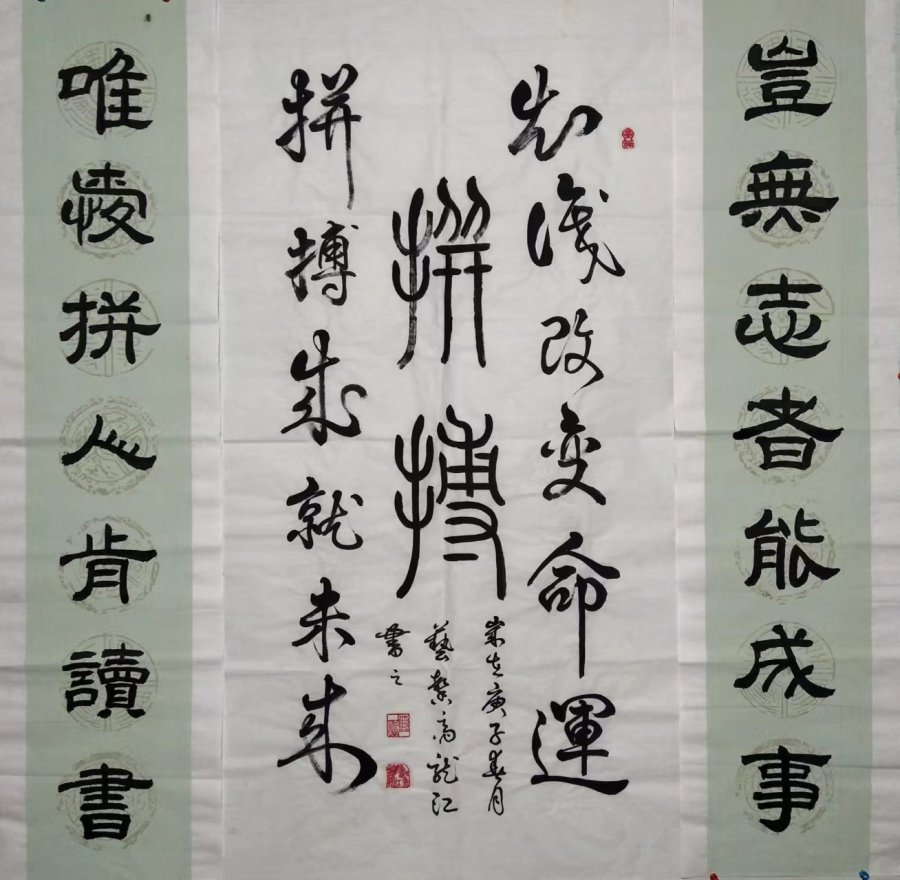 豈無志者能成事
知識改变命運
拼搏
歲在庚子春月
藝馨高龍江
書之
拼搏成就未来
唯拼心肯讀書